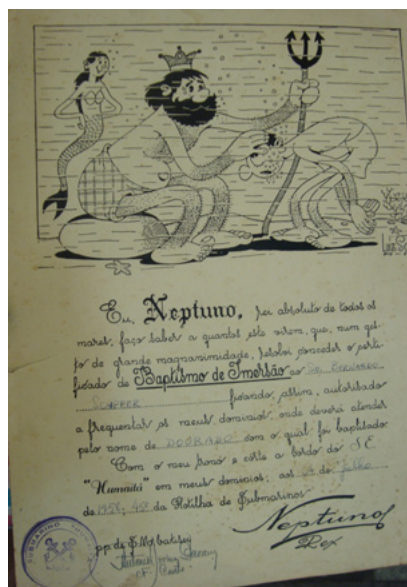 Eu, Neptuno, rei absoluto de todos os
mares, faço saber a quantos este virem, que, num ges-
to de grande magnanimidade, resolvi conceder o certi-
ficado de Baptismo de Imersão ao Sr.
ficando, assim, autorizado
a frequentar os meus dominios, onde deverá atender
pelo nome de DOURADO com o qual foi baptisado
Com o meu trono e côrte a bordo do S.E.
"Humaitá" em meus dominios; aos de julho
de 1958; 45º da Flotilha de Submarinos.
Neptunos
Rex
SUBMARINO